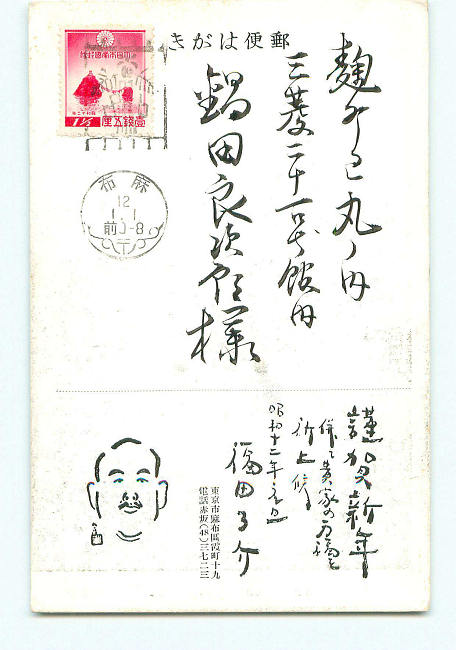 郵便はがき
麹町区丸ノ内
三菱二十一号館内
鍋田良次郎様
大日本帝國郵便
壹錢五厘
1½
麻布
12
1.1
前0-8
謹賀新年
併て貴家の万福を
祈上候
昭和十二年元旦
東京市麻布區霞町十九
電話赤坂(48)三七二三